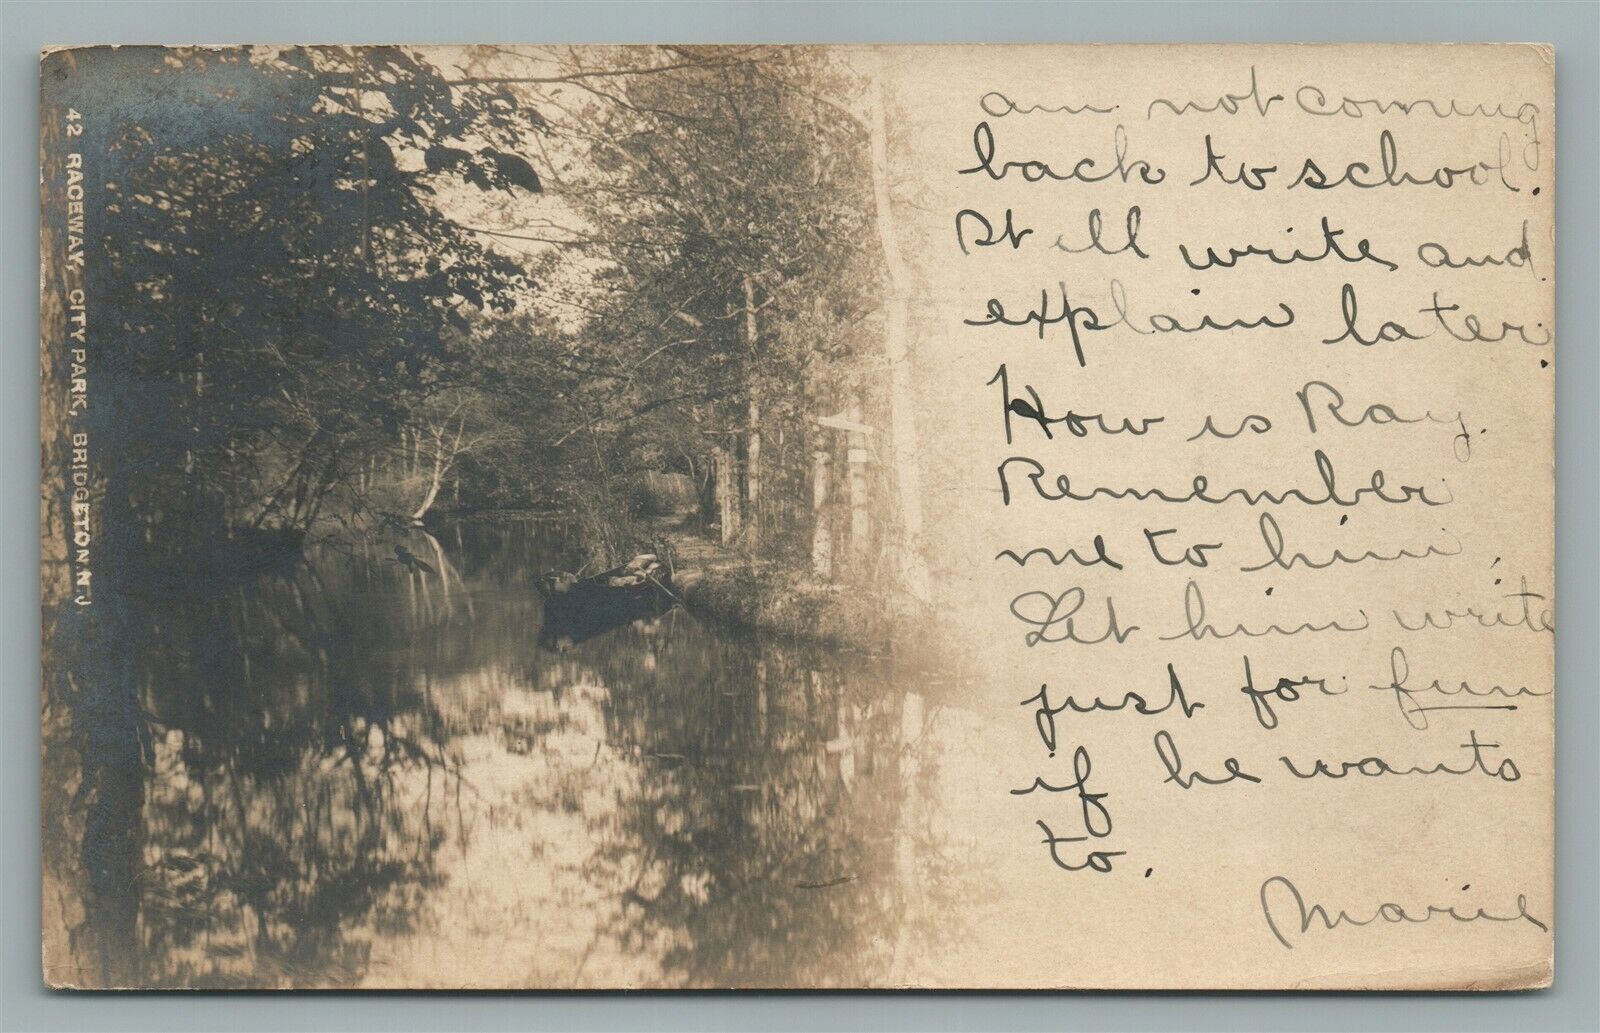 42 RACEWAY, CITY PARK, BRIDGETON N.J
am not coming
back to school.
St ill write and
explain later.
How is Ray.
Remember
me to him.
Let him write
just for fun
if he wants
to.
Marie